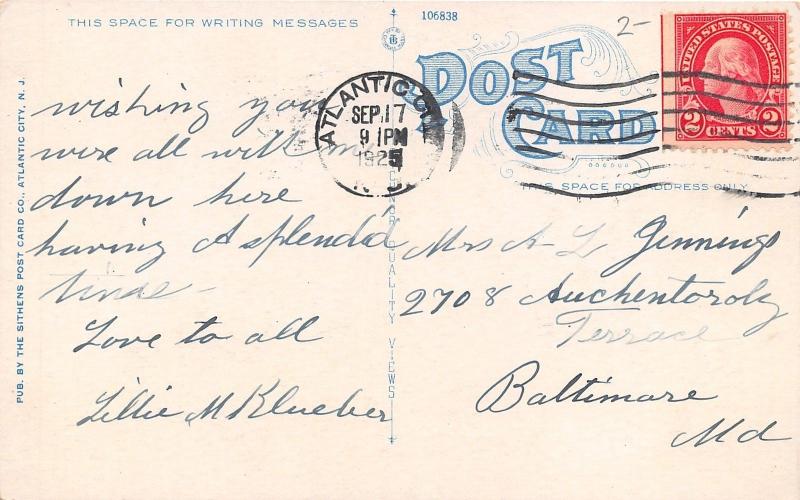 THIS SPACE FOR WRITING MESSAGES
106838
2-
POST CARD
THIS SPACE FOR ADDRESS ONLY
UNITED STATES POSTAGE
2 CENTS 2
ATLANTIC CITY
SEP 17
9 1PM
1925
N.J.
PUB. BY THE SITHENS POST CARD CO., ATLANTIC CITY, N. J.
QUALITY VIEWS
wishing you
were all with me
down here
having A splendid
time-
Love to all
Lillie M Klueber
Mrs A-L Jennings
2708 Auchentoroly
Terrace
Baltimore
Md